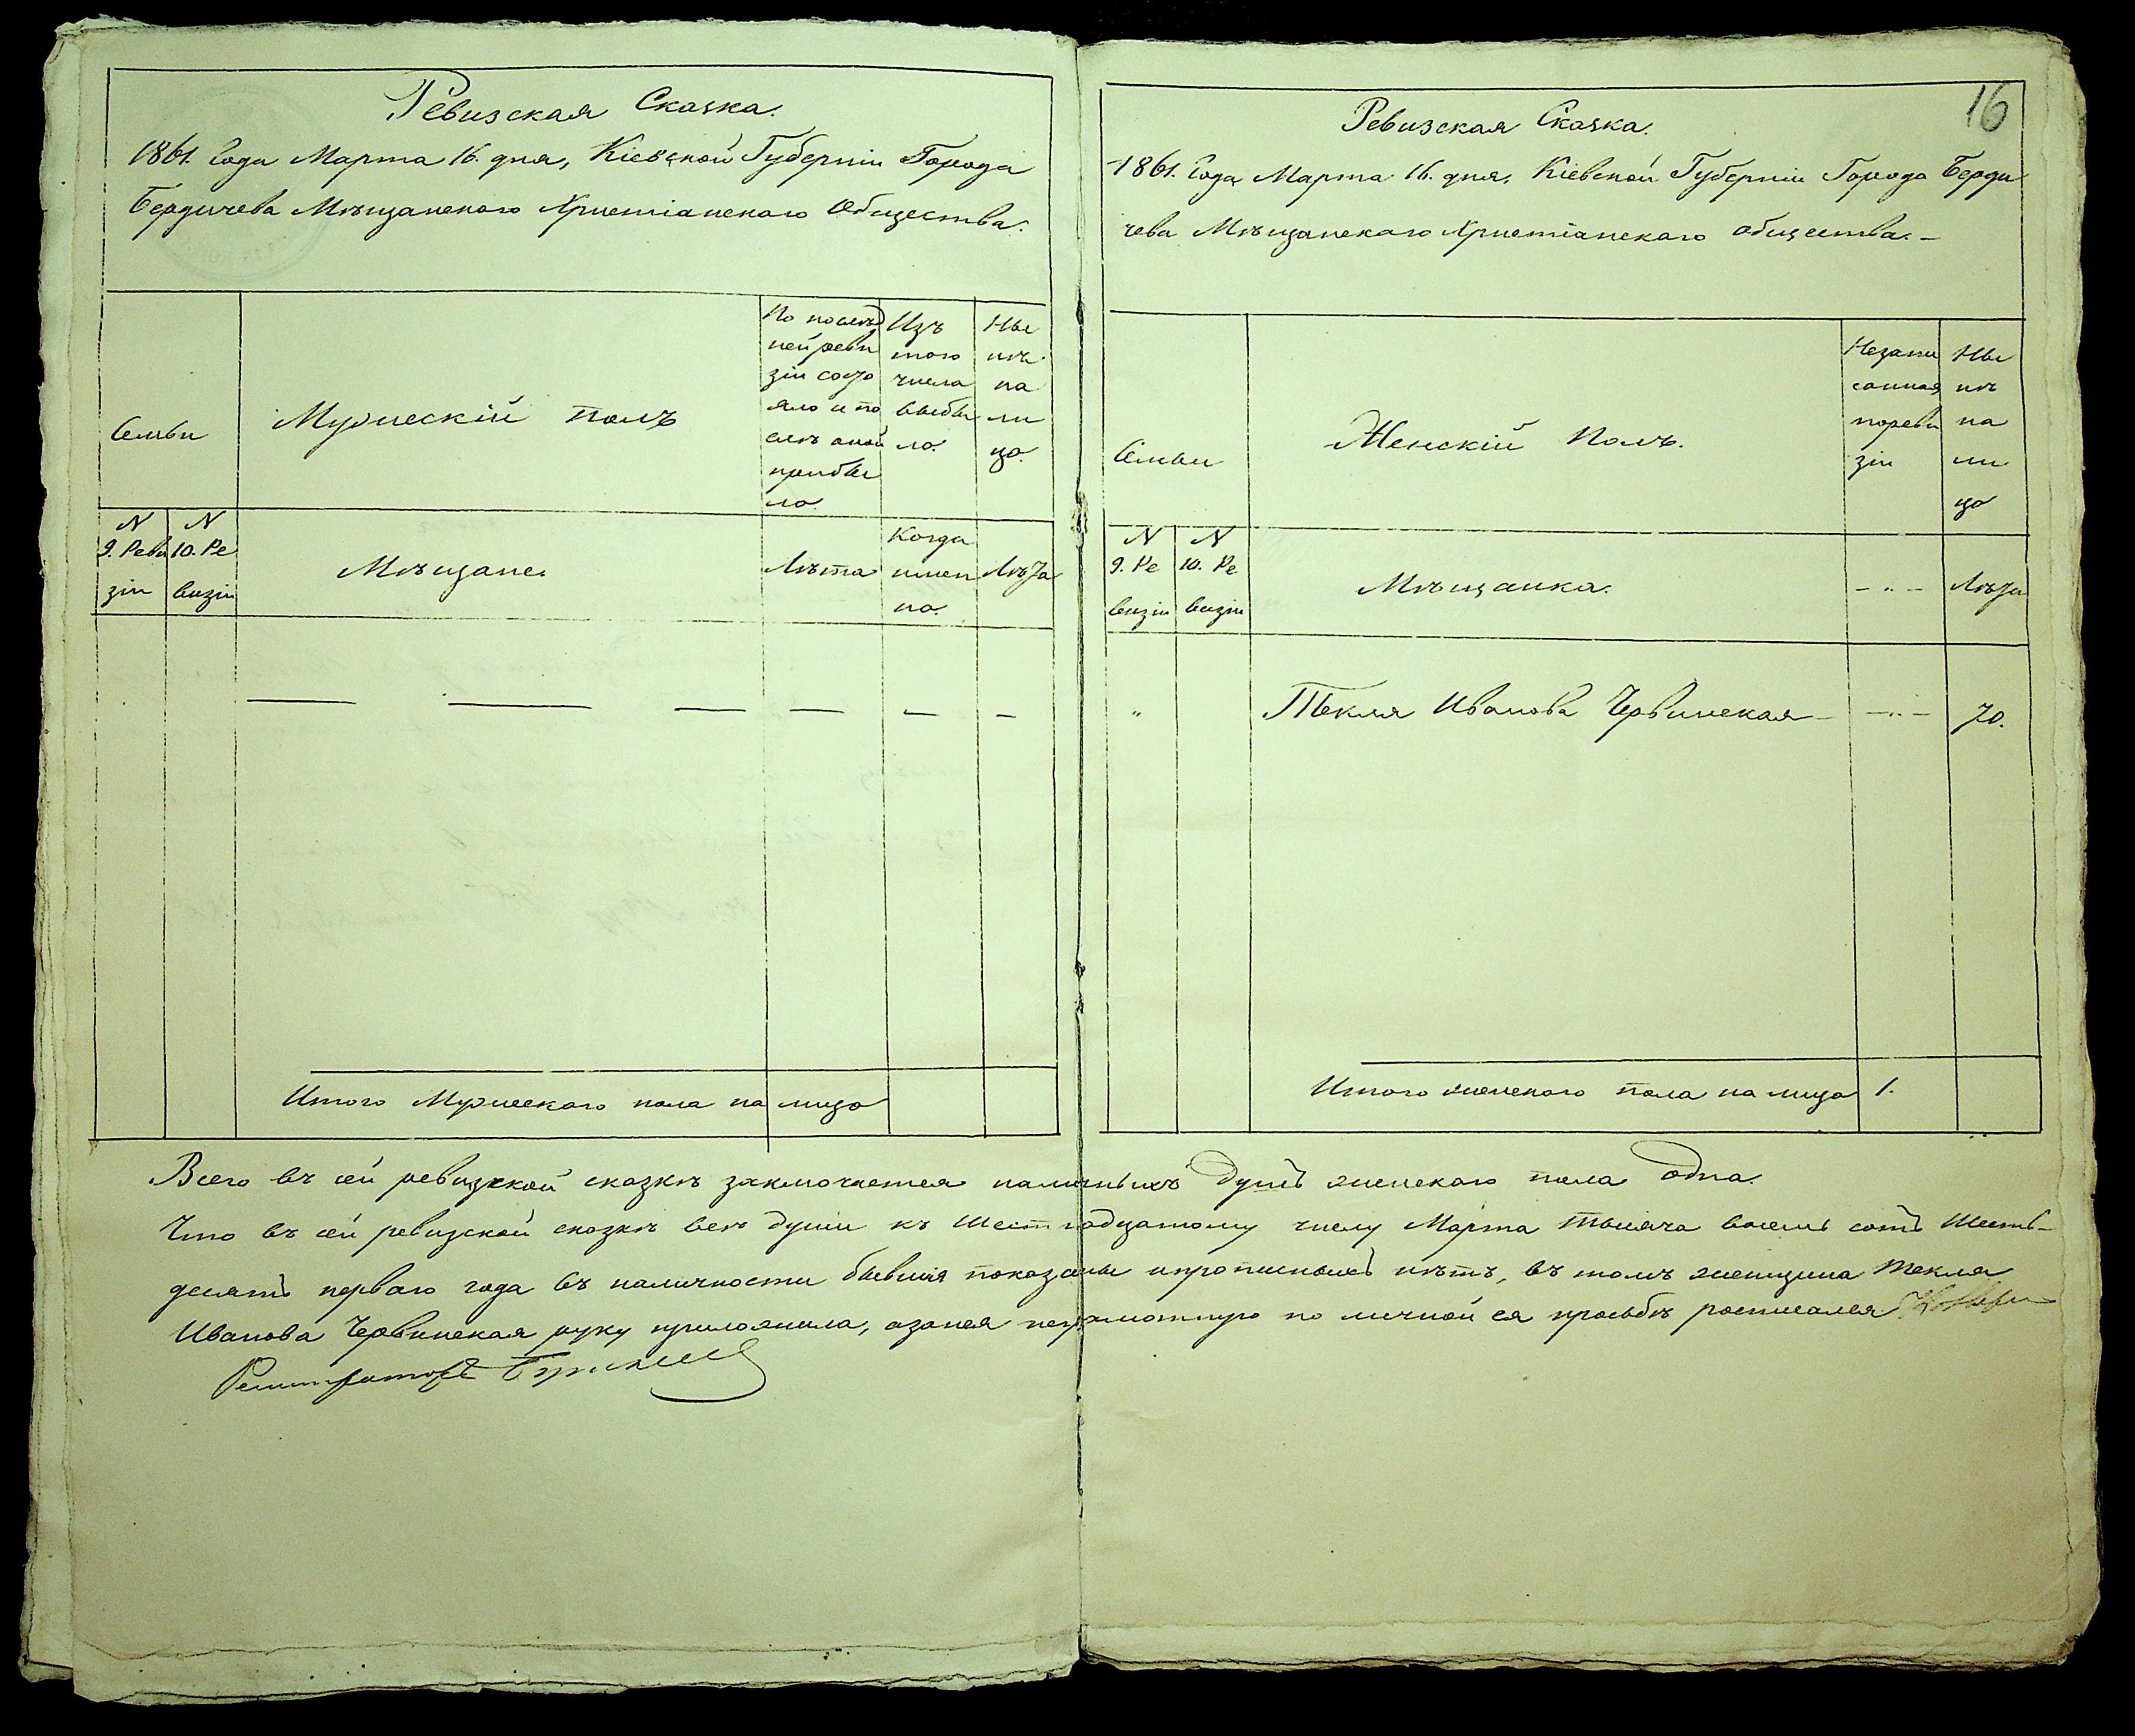 Ревизская Сказка.
1861. Года Марта 16. дня, Кіевской Губерніи Города
Бердичева Мѣщанского Христіанского Общества.
Семьи
Мужескій полъ
По послѣд
ней реви
зіи состо
яло и по
слѣ оной
прибы
ло.
Изъ
того
числа
выбы
ло.
Ны
нѣ
на
ли
цо.
N
9. Реви
зіи
N
10. Ре
визіи
Мѣщане.
Лѣта
Когда
имен
но.
Лѣта
Итого Мужескаго пола на лицо
16
Ревизская Сказка.
1861. Года Марта 16. дня, Кіевской Губерніи Города Берди
чева Мѣщанскаго Христіанскаго общества. –
Семьи
Женскій Полъ.
Незапи
санная
пореви
зіи
Ны
нѣ
на
ли
цо
N
9. Ре
визіи
N
10. Ре
визіи
Мѣщанка.
– „ –
Лѣта
„ Текля Иванова Червинская – – „ – 70.
Итого женского пола на лицо 1.
Всего въ сей ревизской сказкѣ заключается наличныхъ душъ женскаго пола одна.
Что въ сей ревизской сказкѣ всѣ души къ Шестнадцатому числу Марта тысяча восемь сотъ Шесть–
десятъ перваго года въ наличности бывшія показаны ипрописныхъ нѣтъ, въ томъ женщина Текля
Иванова Червинская руку приложила, азанея неграмотную по личной ея просьбѣ росписался
Регистраторъ